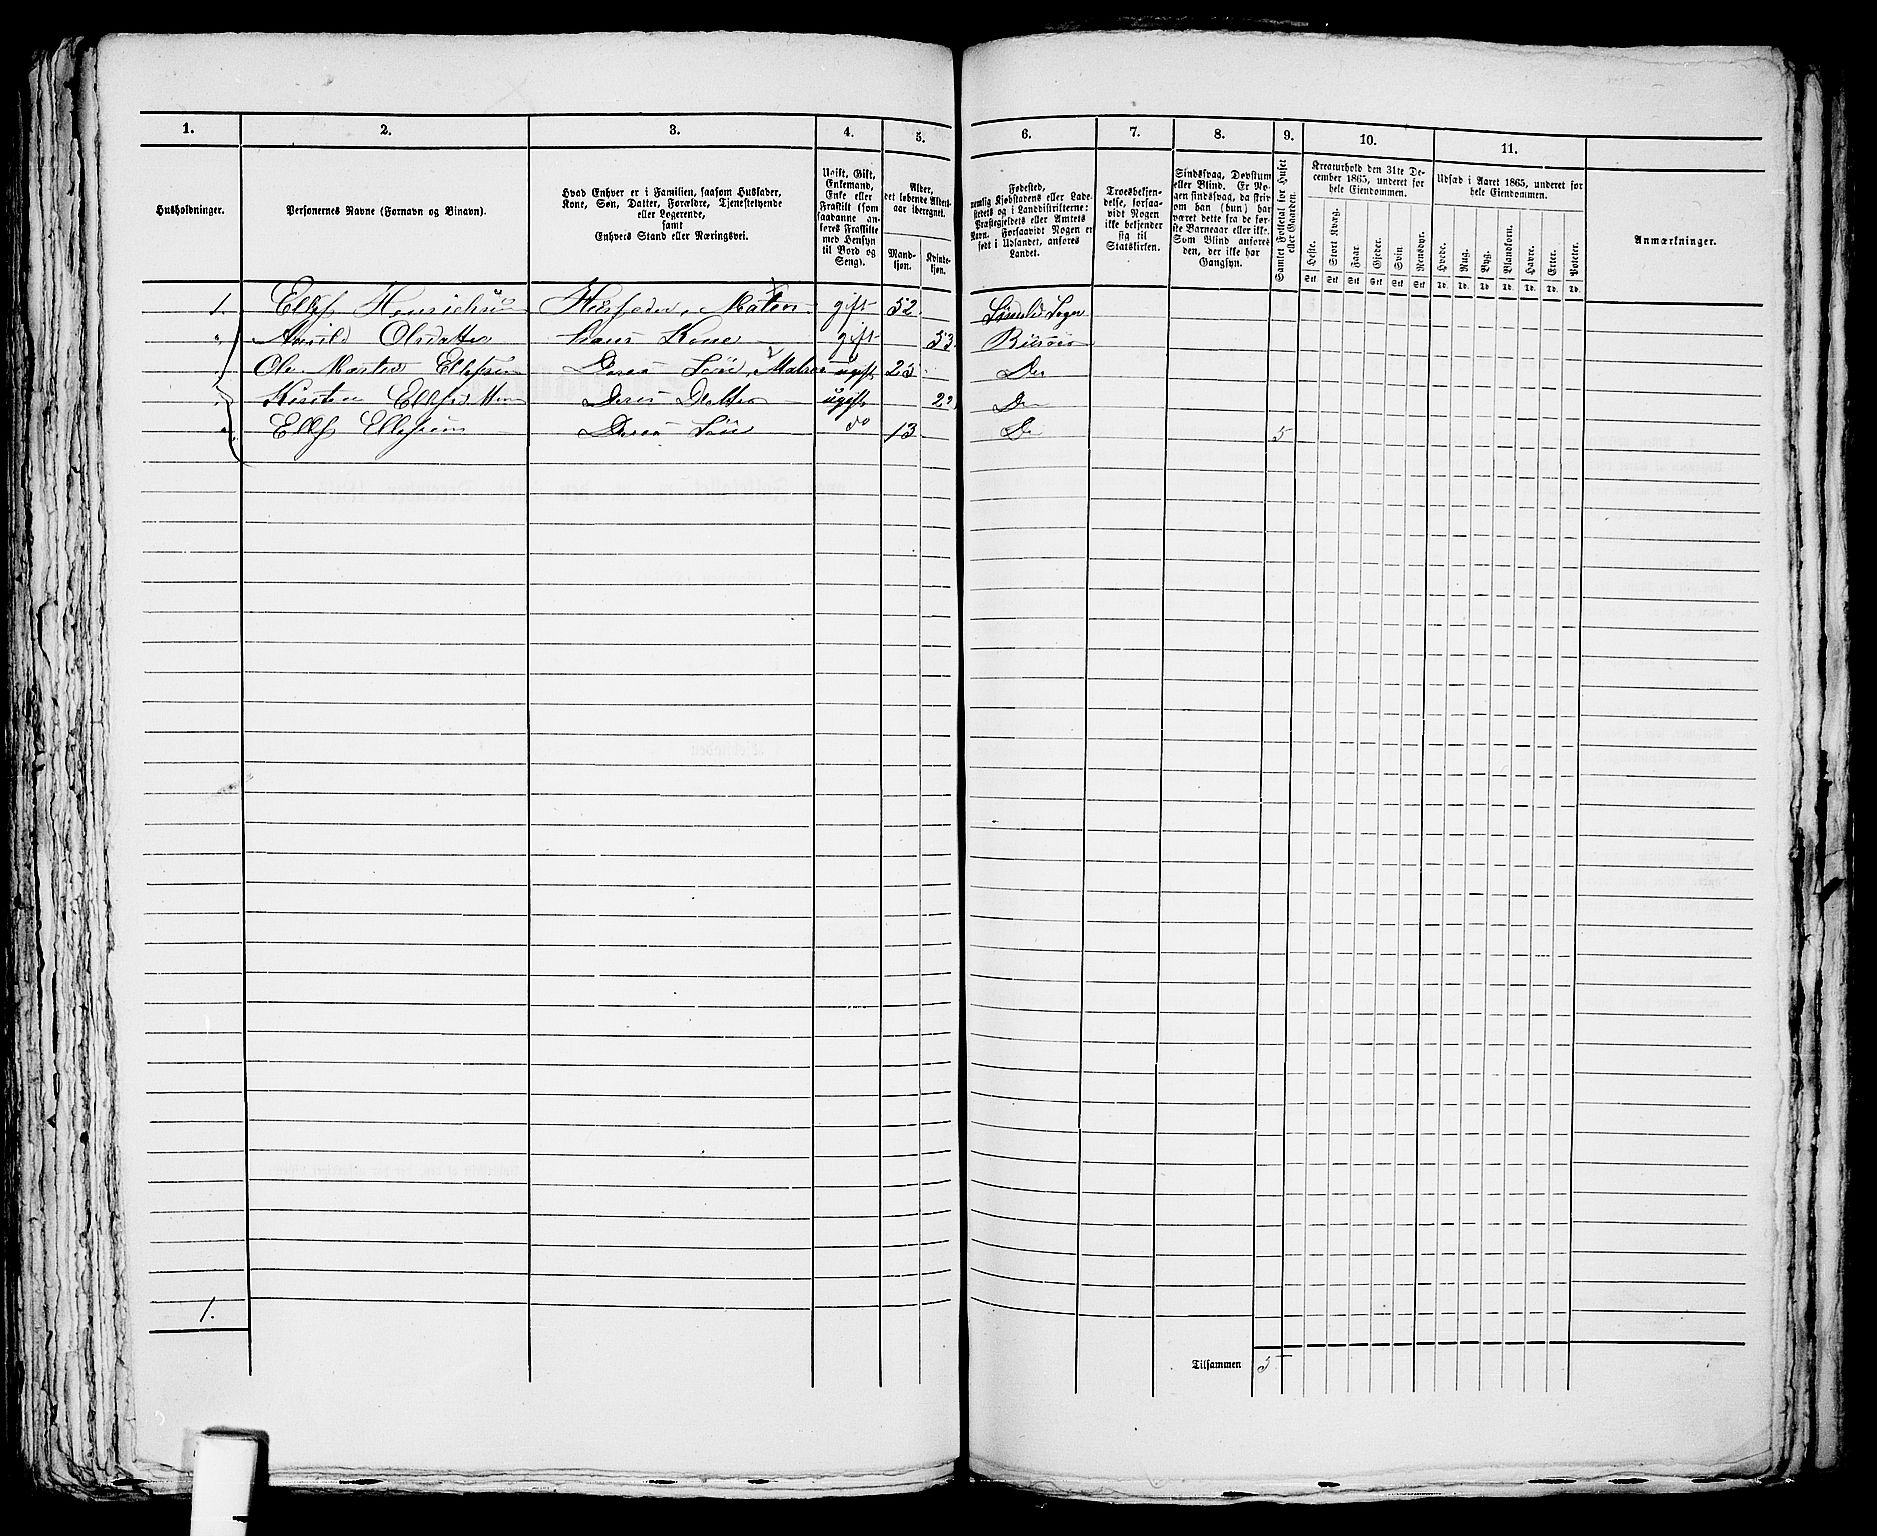 1. 2. 3. 4. 5. 6. 7. 8. 9. 10. 11.
Husholdninger.
Personernes Navne (Fornavn og Binavn).
Hvad Enhver er i Familien, saasom Husfader,
Kone, Søn, Datter, Forældre, Tjenestetyende
eller Logerende,
samt
Enhvers Stand eller Næringsvei.
Ugift, Gift,
Enkemand,
Enke eller
Fraskilt (som
saadanne an-
føres Fraskilte
med Hensyn
til Bord og
Seng).
Alder,
det løbende Alders-
aar iberegnet.
Mand-
kjøn.
Kvinde-
kjøn.
Fødested,
nemlig Kjøbstadens eller Lade-
stedets og i Landdistrikterne:
Præstegjeldets eller Amtets
Navn. Forsaavidt Nogen er
født i Udlandet, anføres
Landet.
Troesbekjen-
delse, forsaa-
vidt Nogen
ikke bekjender
sig til
Statskirken.
Sindssvag, Døvstum
eller Blind. Er No-
gen sindssvag, da skri-
ves om han (hun) har
været dette fra de før-
ste Barneaar eller ikke.
Som Blind anføres
den, der ikke har
Gangsyn.
Samlet Folketal for Huset
eller Gaarden.
Kreaturhold den 31te De-
cember 1865, underet for
hele Eiendommen.
Heste. Stort Kvæg. Faar. Gjeder. Svin. Rensdyr.
Stk Stk Stk Stk Stk Stk
Udsæd i Aaret 1865, underet for
hele Eiendommen.
Hvede. Rug. Byg. Blandkorn. Havre. Erter. Poteter.
Td. Td. Td. Td. Td. Td. Td.
Anmærkninger.
1. Ellef Henrichsen Husfader, gift 52
Olsdatter Hans Kone gift 53
Ole Ellefsen Deres Søn, Matros ugift 23 Do
Kirstine Deres Datter ugift 22 Do
Ellef Ellefsen Deres Søn do 13 Do 5
1.
Tilsammen 5